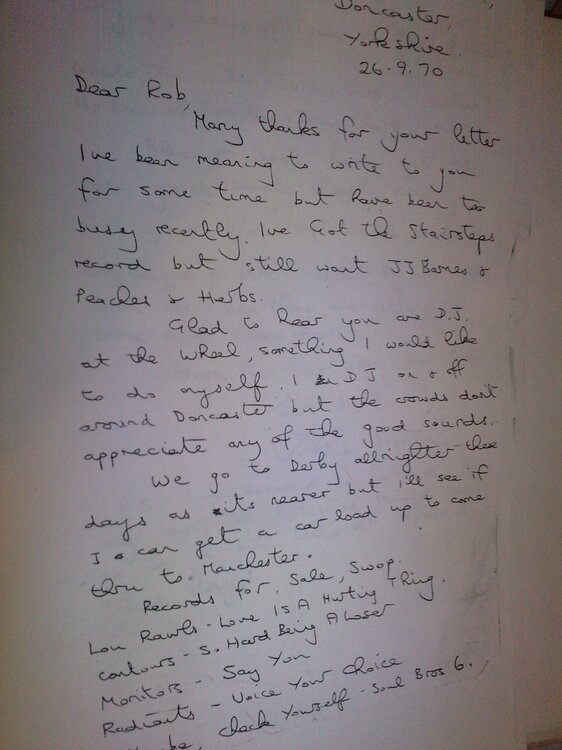 Doncaster,
Yorkshire.
26.9.70
Dear Rob,
Many thanks for your letter
I've been meaning to write to you
for some time but have been too
busy recently. I've Got the Stairsteps
record but still want JJ Barnes &
Peaches & Herbs.
Glad to hear you are D.J.
at the Wheel, something I would like
to do myself. I D.J. on & off
around Doncaster but the crowds don't
appreciate any of the good sounds.
We go to Derby allnighter these
days as its nearer but i'll see if
I can get a car load up to come
thru to Manchester.
Records for Sale, Swop.
Lou Rawls - Love Is A Hurting Thing.
Contours - So Hard Being A Loser
Monitors - Say You
Radiants - Voice Your Choice
check Yourself - Soul Bros 6.